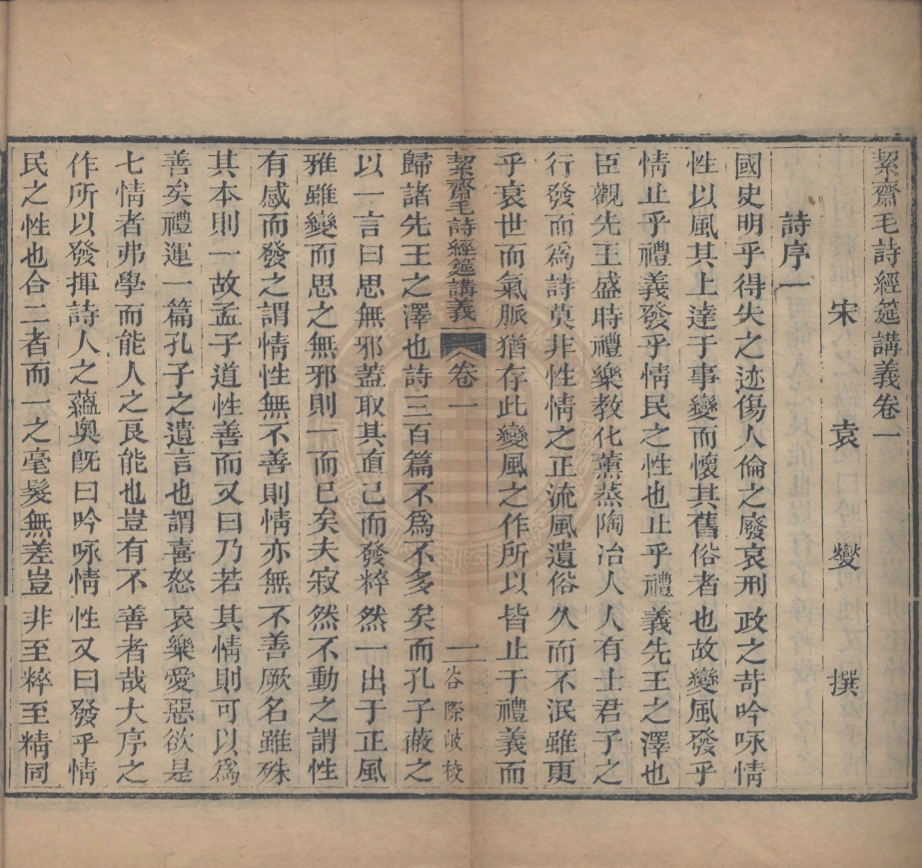 絜齋毛詩經筵講義卷一
宋袁燮撰
詩序一
國史明乎得失之迹傷人倫之廢哀刑政之苛吟咏情
性以風其上達于事變而懷其舊俗者也故變風發乎
情止乎禮義發乎情民之性也止乎禮義先王之澤也
臣觀先王盛時禮樂教化薰蒸陶冶人人有士君子之
行發而爲詩莫非性情之正流風遺俗久而不泯雖更
乎衰世而氣脈猶存此變風之作所以皆止于禮義而
絜齋毛詩經筵講義 卷一 一 谷際岐校
歸諸先王之澤也詩三百篇不爲不多矣而孔子蔽之
以一言曰思無邪蓋取其直己而發粹然一出于正風
雅雖變而思之無邪則一而已矣夫寂然不動之謂性
有感而發之謂情性無不善則情亦無不善厥名雖殊
其本則一故孟子道性善而又曰乃若其情則可以爲
善矣禮運一篇孔子之遺言也謂喜怒哀樂愛惡欲是
七情者弗學而能人之良能也豈有不善者哉大序之
作所以發揮詩人之蘊奧旣曰吟咏情性又曰發乎情
民之性也合二者而一之毫髮無差豈非至粹至精同